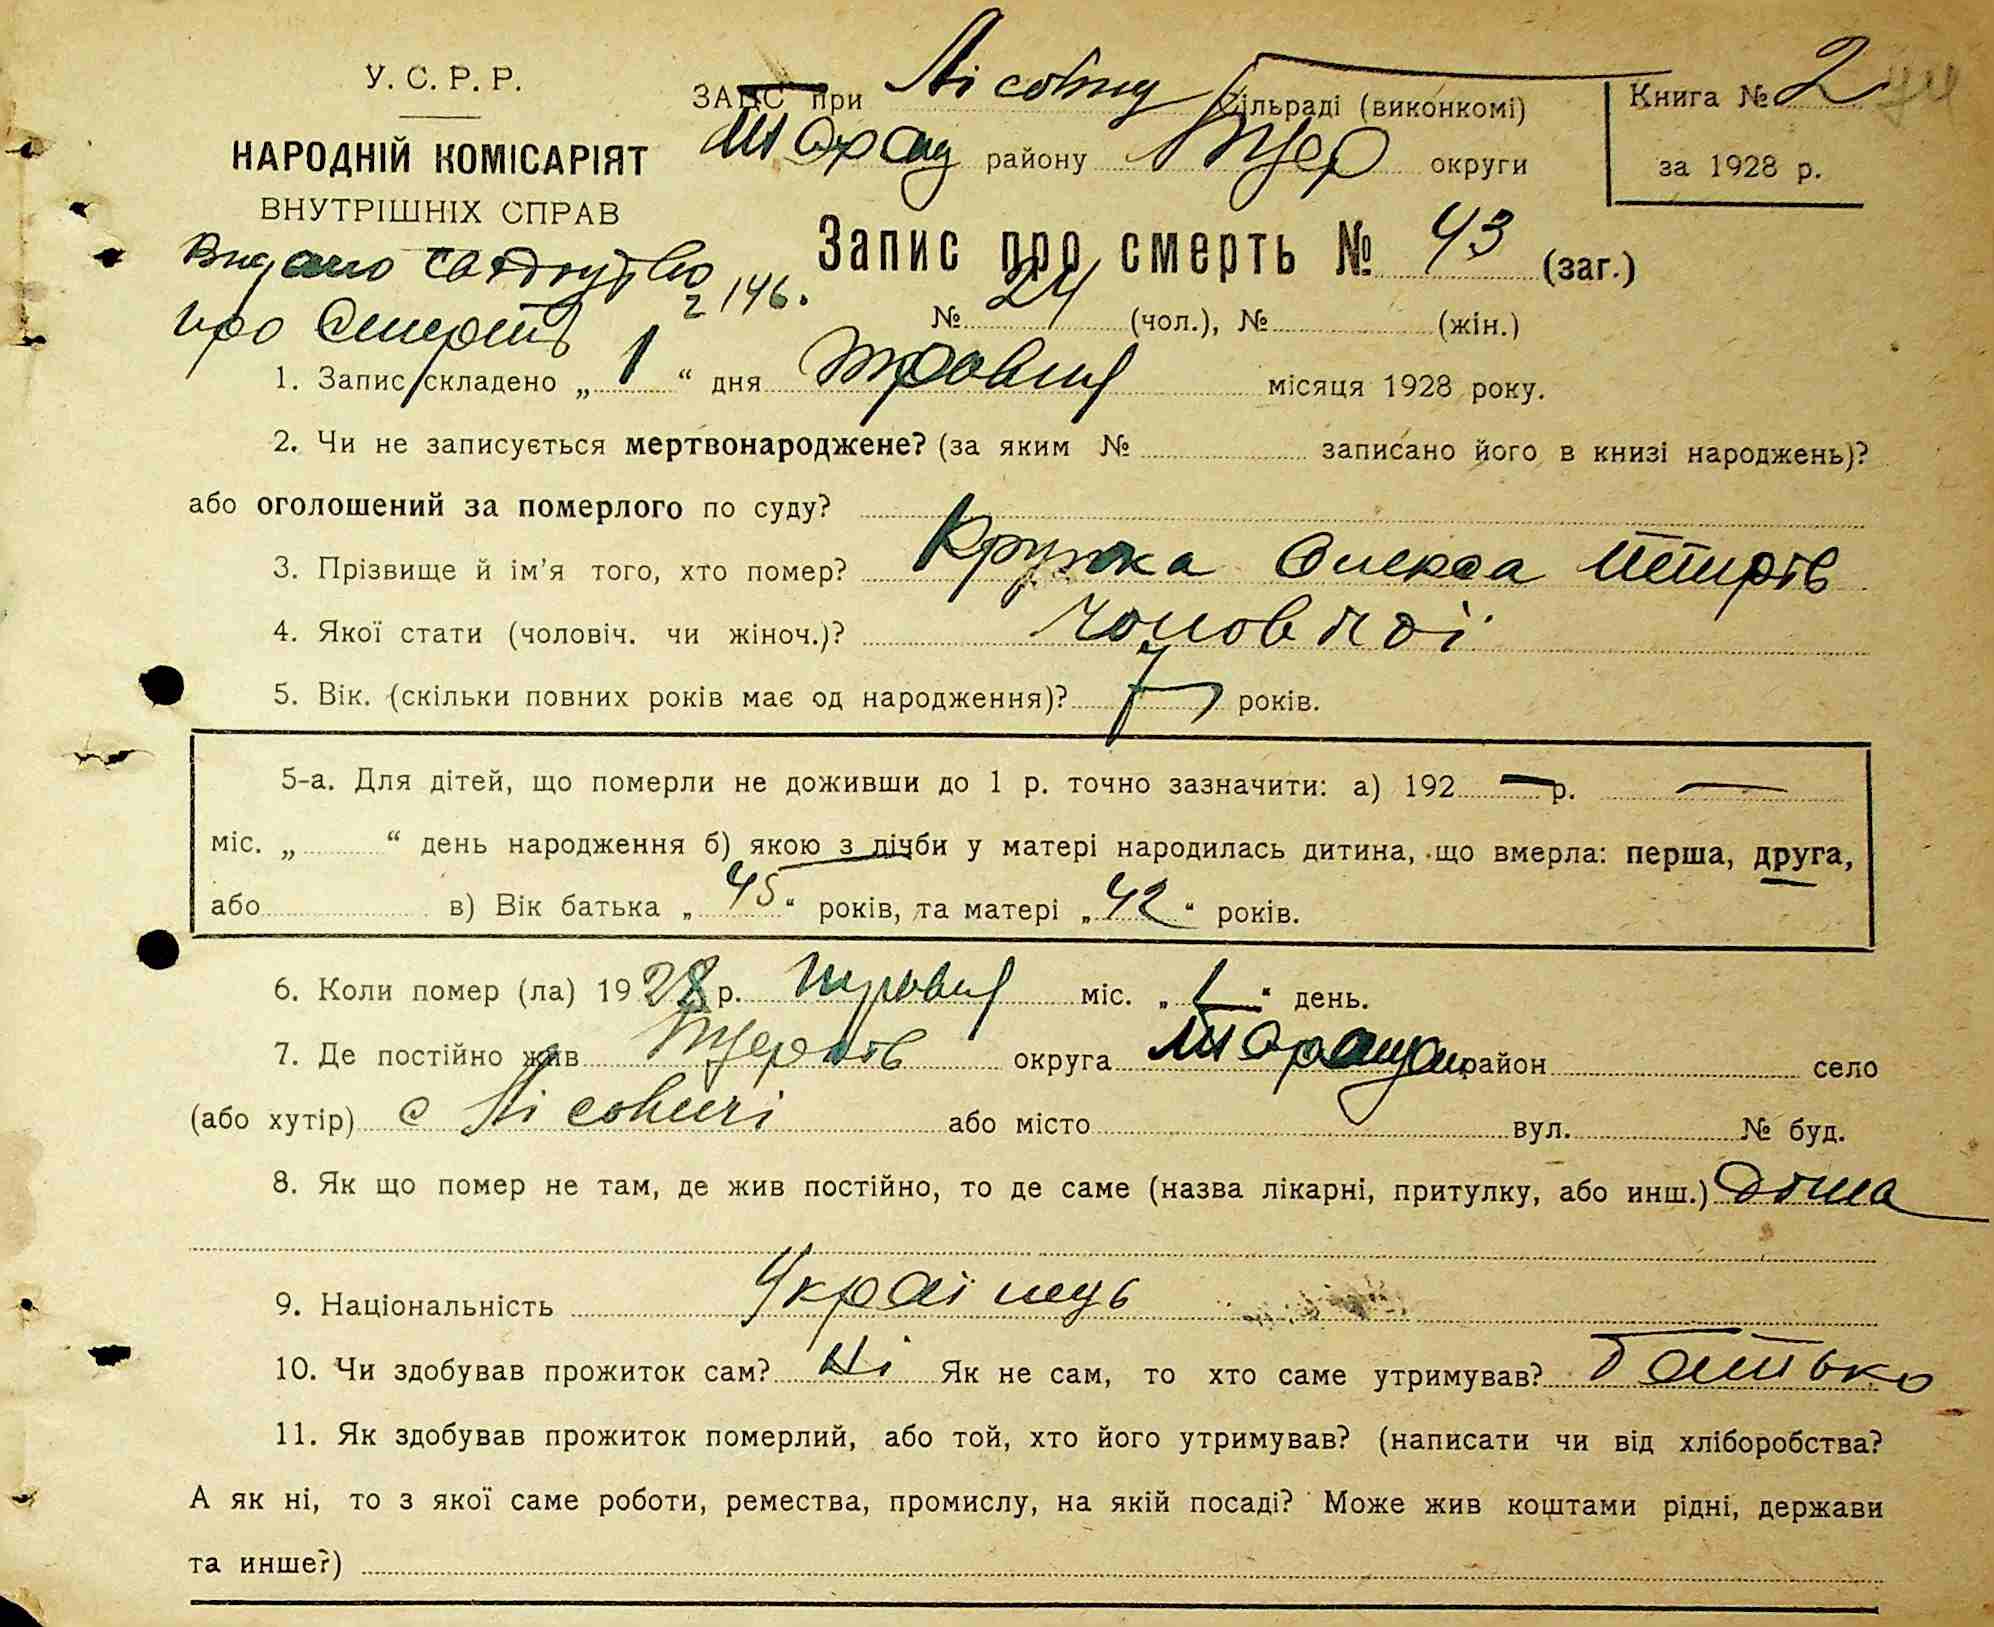 У. С. Р. Р.
НАРОДНІЙ КОМІСАРІЯТ
ВНУТРІШНІХ СПРАВ
ЗАПС при Лісовиц Сільраді (виконкомі)
Таращ району БЦер округи
Книга № 2
за 1928 р.
Видано
про Смерть 146.
Запис про смерть № 43 (заг.)
№ 24 (чол.), № (жін.)
1. Запис складено „ 1 “ дня травня місяця 1928 року.
2. Чи не записується мертвонароджене? (за яким № записано його в книзі народжень)?
або оголошений за померлого по суду?
3. Прізвище й ім'я того, хто помер? Олекса
4. Якої стати (чоловіч. чи жіноч.)?
5. Вік. (скільки повних років має од народження)? 7 років.
5-а. Для дітей, що померли не доживши до 1 р. точно зазначити: а) 192 р.
міс. „ “ день народження б) якою з лічби у матері народилась дитина, що вмерла: перша, друга,
або в) Вік батька „ 45 “ років, та матері „ 42 “ років.
6. Коли помер (ла) 1928 р. травня міс. „ 1 “ день.
7. Де постійно жив округа район село
(або хутір) с Лісовичі або місто вул. № буд.
8. Як що помер не там, де жив постійно, то де саме (назва лікарні, притулку, або инш.) дома
9. Національність Українець
10. Чи здобував прожиток сам? Ні Як не сам, то хто саме утримував? Батько
11. Як здобував прожиток померлий, або той, хто його утримував? (написати чи від хліборобства?
А як ні, то з якої саме роботи, ремества, промислу, на якій посаді? Може жив коштами рідні, держави
та инше?)